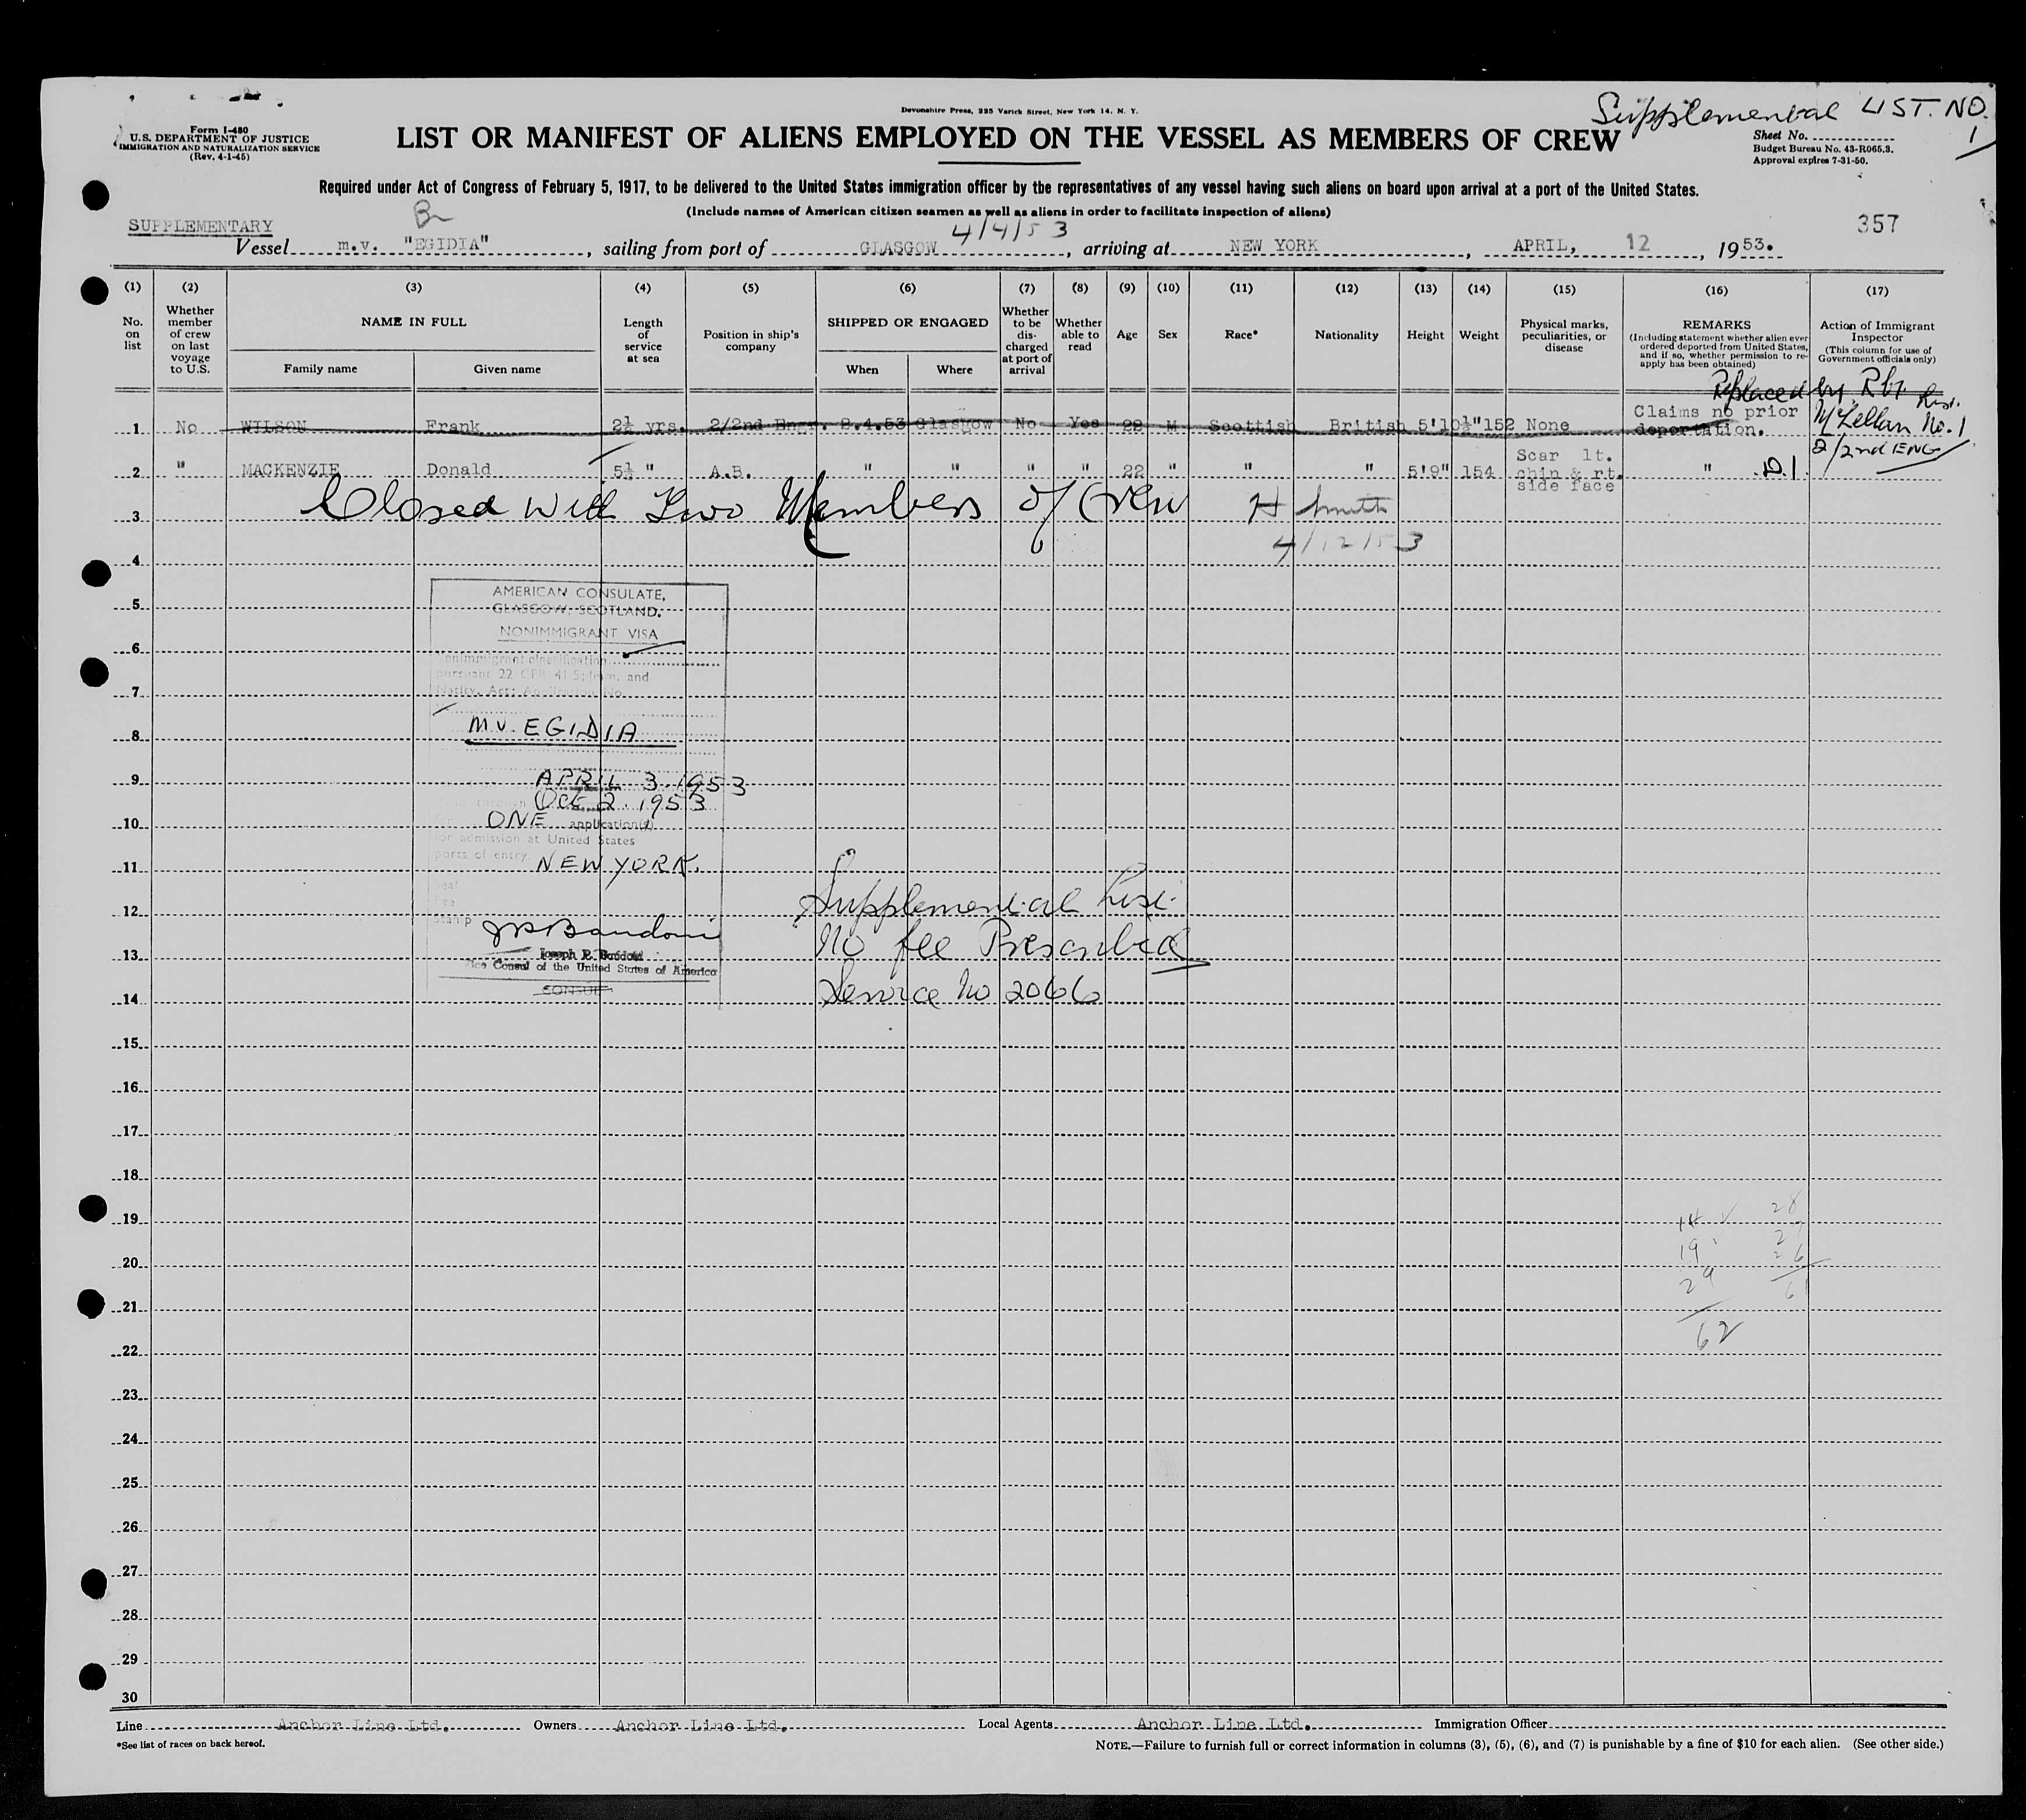 Devonshire Press, 225 Varick Street, New York 14, N. Y.
Supplemental LIST. NO. 1
Form I-480
U.S. DEPARTMENT OF JUSTICE
IMMIGRATION AND NATURALIZATION SERVICE
(Rev. 4-1-45)
LIST OR MANIFEST OF ALIENS EMPLOYED ON THE VESSEL AS MEMBERS OF CREW
Sheet No.
Budget Bureau No. 43-R065.3.
Approval expires 7-31-50.
Required under Act of Congress of February 5, 1917, to be delivered to the United States immigration officer by the representatives of any vessel having such aliens on board upon arrival at a port of the United States.
(Include names of American citizen seamen as well as aliens in order to facilitate inspection of aliens)
SUPPLEMENTARY
Br
4/4/53
357
Vessel m.v. "EGIDIA", sailing from port of GLASGOW, arriving at NEW YORK, APRIL, 12, 1953.
(1) (2) (3) (4) (5) (6) (7) (8) (9) (10) (11) (12) (13) (14) (15) (16) (17)
No. on list
Whether member of crew on last voyage to U.S.
NAME IN FULL
Family name
Given name
Length of service at sea
Position in ship's company
SHIPPED OR ENGAGED
When
Where
Whether to be discharged at port of arrival
Whether able to read
Age
Sex
Race*
Nationality
Height
Weight
Physical marks, peculiarities, or disease
REMARKS
(Including statement whether alien ever ordered deported from United States, and if so, whether permission to re-apply has been obtained)
Action of Immigrant Inspector
(This column for use of Government officials only)
Replaced by Rbt.
1 No WILSON Frank 2½ yrs. 2/2nd Engr. 2.4.53 Glasgow No Yes 22 M Scottish British 5'10½" 152 None Claims no prior deportation.
McLellan No. 1
2/2nd ENG
2 " MACKENZIE Donald 5½ " A.B. " " " " 22 " " " 5'9" 154 Scar lt. chin & rt. side face " D.1
3 Closed with Two Members of Crew H Smith
4/12/53
4
5
6
7
8
9
10
11
12
13
14
15
16
17
18
19
20
21
22
23
24
25
26
27
28
29
30
AMERICAN CONSULATE,
GLASGOW, SCOTLAND.
NONIMMIGRANT VISA
Nonimmigrant classification
pursuant 22 CFR 41.5; Imm. and
Natlty. Act; Application No.
M.V. EGIDIA
APRIL 3. 1953
OCT 2. 1953
ONE application(s)
for admission at United States
ports of entry
NEW YORK.
Seal
Fee
Stamp
Joseph P.
Vice Consul of the United States of America
CONSUL
Supplemental List.
No fee Prescribed
Service No 2066
14 28
19 27
29 6
62 61
Line Anchor Line Ltd. Owners Anchor Line Ltd. Local Agents Anchor Line Ltd. Immigration Officer
*See list of races on back hereof.
NOTE.—Failure to furnish full or correct information in columns (3), (5), (6), and (7) is punishable by a fine of $10 for each alien. (See other side.)